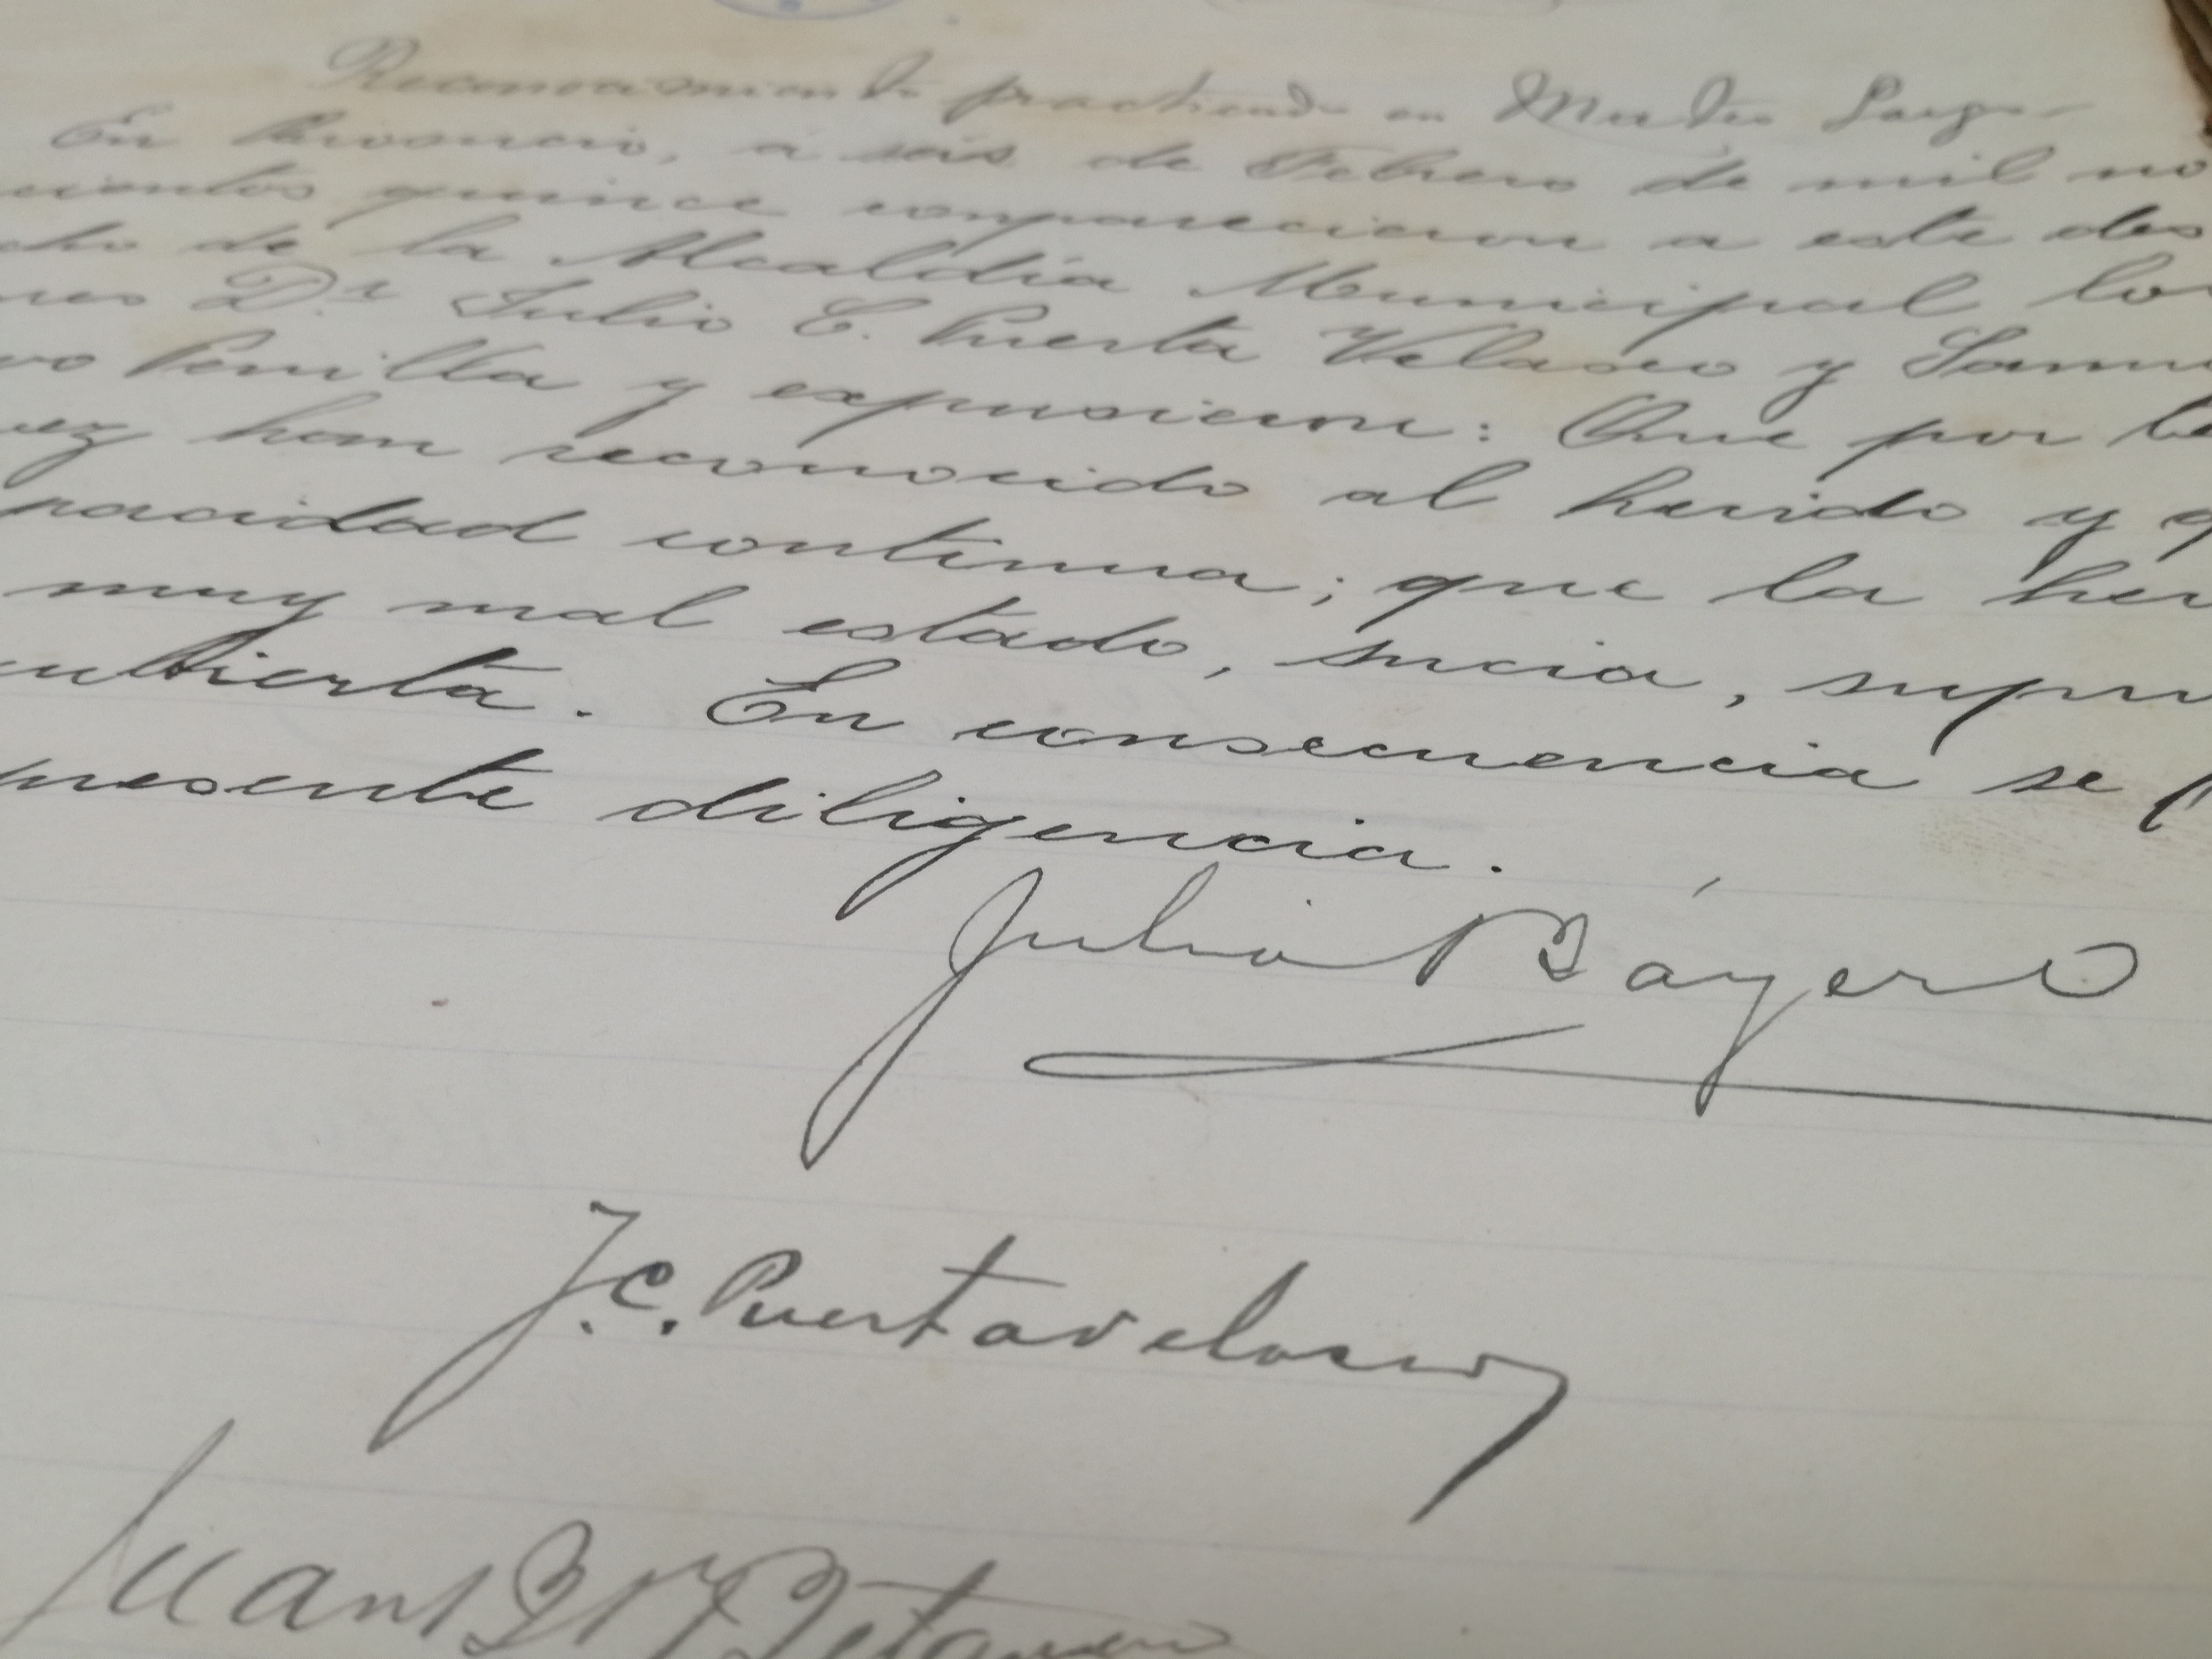 Reconocimiento practicado en
En Rionegro, a seis de Febrero de mil no
cientos quince comparecieron a este des
cho de la Alcaldía Municipal los
res Dr. Julio C. Puerta Velasco y Samu
vo Penilla y expusieron: Que por te
vez han reconocido al herido y q
pacidad continua; que la her
muy mal estado, sucia, supu
cubierta. En consecuencia se f
presente diligencia.
Julio Báyer O
J.C. Puerta Velasco
Juan B